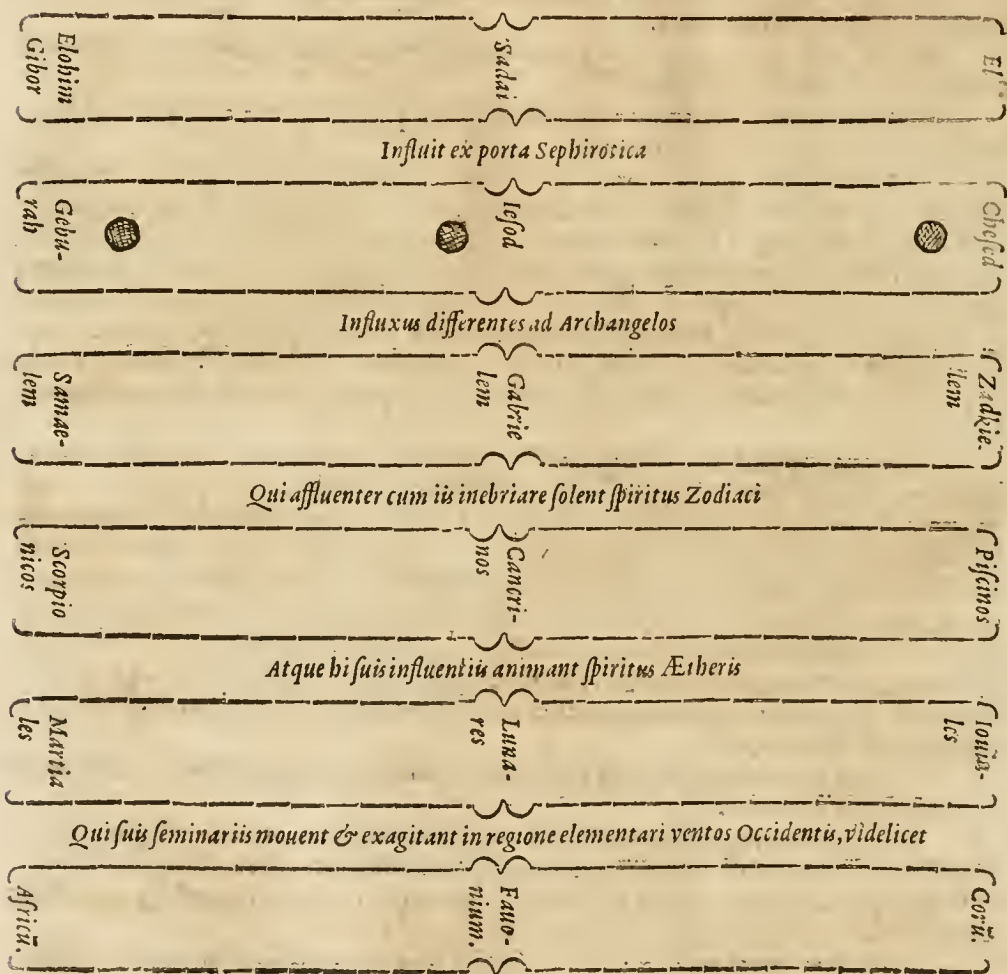 Elohim
Gibor
Sadai
El
Influit ex porta Sephirotica
Gebu-
rah
Ieſod
Cheſed
Influxus differentes ad Archangelos
Samae-
lem
Gabrie
lem
Zadkie-
lem
Qui affluenter cum iis inebriare ſolent ſpiritus Zodiaci
Scorpio
nicos
Cancri-
nos
Piſcinos
Atque hi ſuis influentiis animant ſpiritus Ætheris
Martia
les
Luna-
res
Iouia-
les
Qui ſuis ſeminariis mouent & exagitant in regione elementari ventos Occidentis, videlicet
Africū.
Fauo-
nium.
Corū.